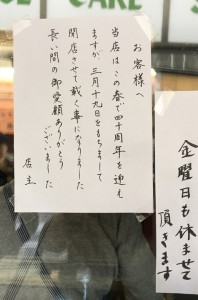 CAKE
S
お客様へ
当店はこの春で四十周年を迎え
ますが、三月十九日をもちまして
閉店させて戴く事になりました
長い間の御愛顧ありがとう
ございました
店主
金曜日も休ませて
頂きます